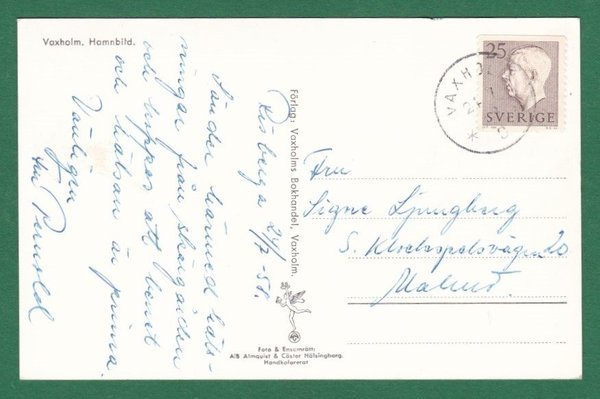 Vaxholm. Hamnbild.
Risberga 24/7 -54.
Sänder härmed häls-
ningar från skärgården
och hoppas att benet
och hälsan är prima.
Vänligen
Förlag: Vaxholms Bokhandel, Vaxholm.
Foto & Ensamrätt:
A/B Almquist & Cöster Hälsingborg.
Handkolorerat
25
SVERIGE
VAXHO
Fru
Signe Ljungberg
S. Kyrkogatsvägen 20
Malmö.